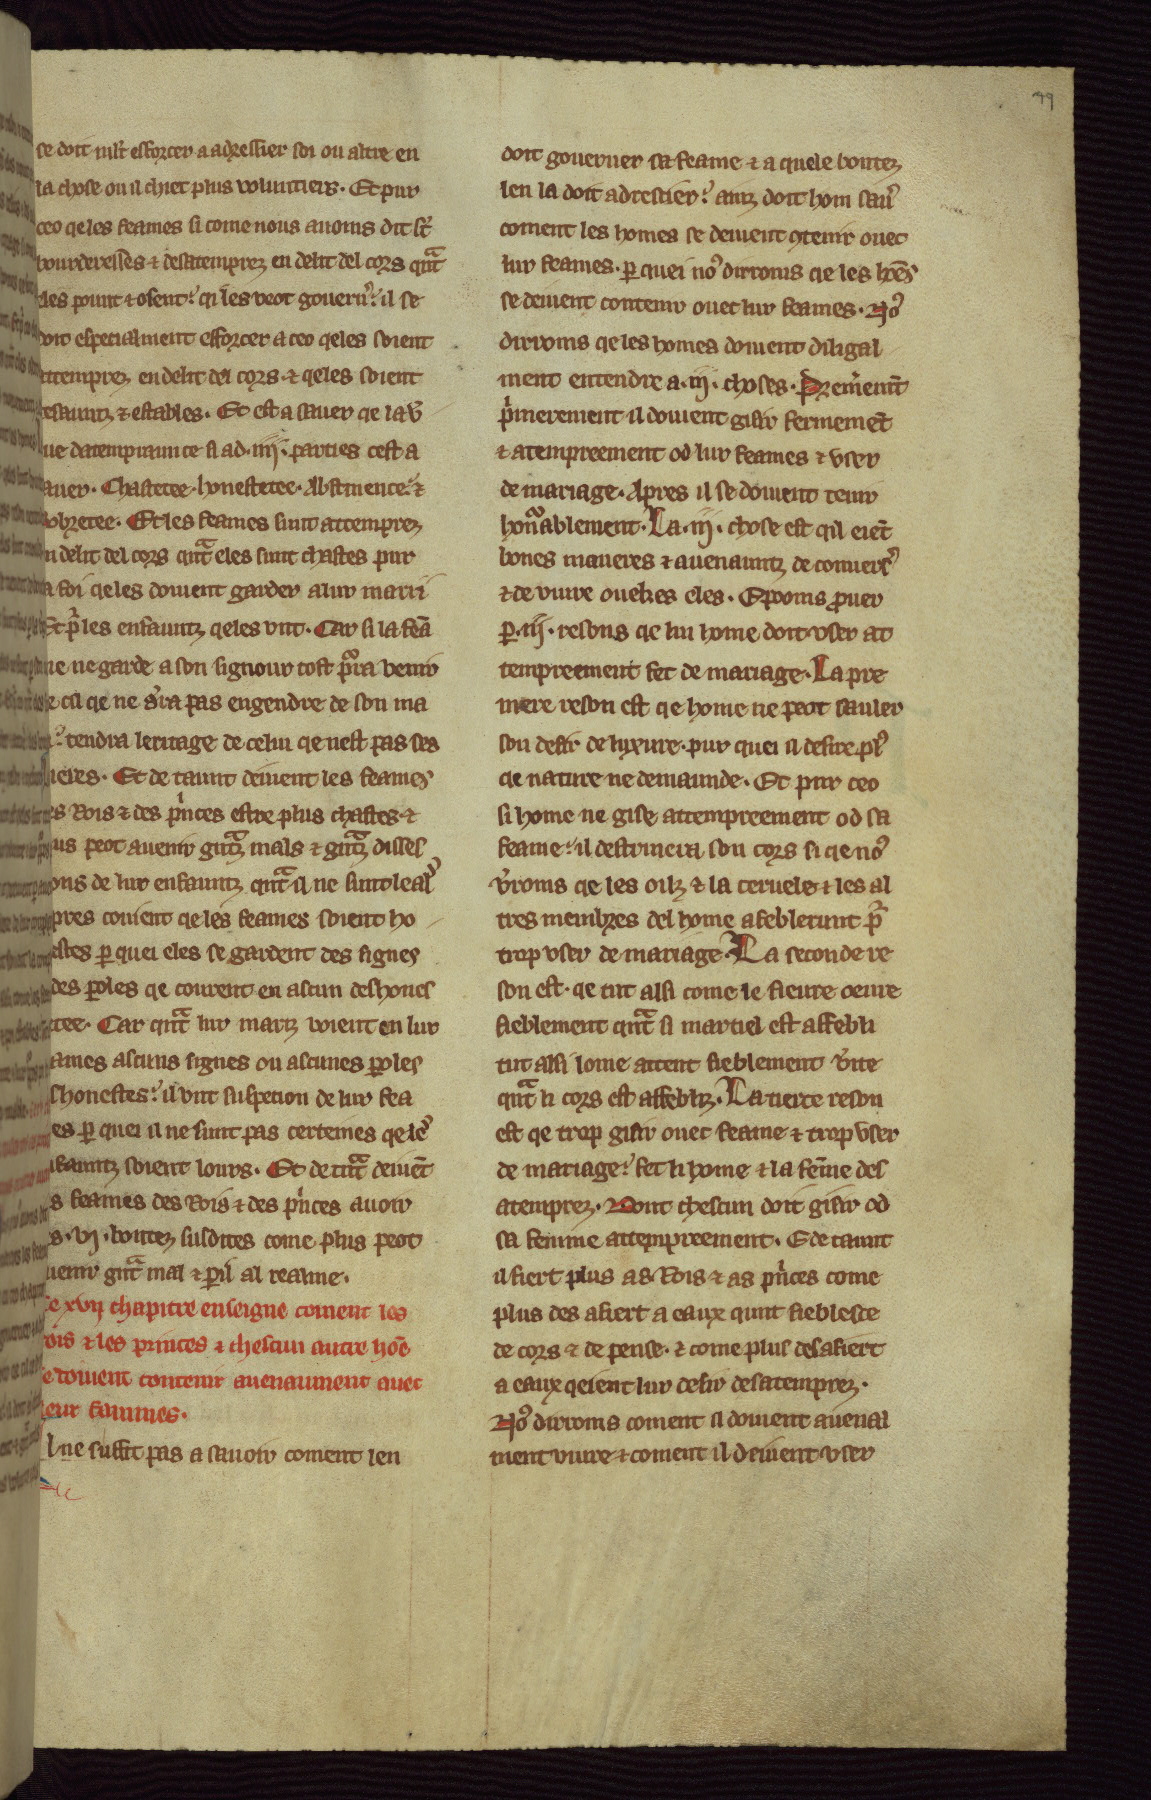 49
se doit mlt esforcer a adressier soi ou altre en
la chose ou il chiet plus voluntiers. Et pur
ceo qe les feames si come nous auoms dit st̄
bourderesses & desatemprez en delit del cors qnt̄
eles pount & osent. qi les veot gouern̄. il se
doit especialment efforcer a ceo qeles soient
attemprez en delit del cors. & qeles soient
tesauntz & estables. Et est a sauer qe la v̄
tue datempraunce si ad .iiij. parties cest a
sauer. Chastetee. honestetee. Abstinence. &
sobretee. Et les feames sunt attemprez
en delit del cors qnt̄ eles sunt chastes pur
la foi qeles doiuent garder a lur marii
Et pr̄ les enfauntz qeles vnt. Car si la feā
me ne garde a son signour tost porra venir
qe cil qe ne sra pas engendre de son ma
ri. tendra leritage de celui qe nest pas ses
peres. Et de taunt deiuent les feames
des Rois & des pinces estre plus chastes &
plus peot auenir gntz mals & gntz disses
ions de lur enfauntz qnt̄ il ne sunt leal
Apres couient qe les feames soient ho
nestes p̱ quei eles se gardent des signes
& des p̱oles qe courent en ascun deshones
tee. Car qnt̄ lur martz voient en lur
feames ascuns signes ou ascunes p̱oles
deshonestes. il vnt suspecion de lur fea
mes p̱ quei il ne sunt pas certeines qe le
enfauntz soient lours. Et de tnt̄ deiuēt
les feames des Rois & des pinces auoir
les .vj. bontez susdites come plus peot
auenir gnt̄ mal & p̱il al reaume.
Le xvij chapitre enseigne coment les
rois & les princes & chescun autre hōe
se doiuent contenir auenaument auec
leur fammes.
Il ne suffit pas a sauoir coment len
doit gouerner sa feame & a quele bontez
len la doit adressier. auntz doit hom sau
coment les homes se deiuent 9tenir ouec
lur feames. p̱ quei no9 dirroms qe les hōes
se deiuent contenir ouec lur feames. No9
dirroms qe les homes doiuent diligal
ment entendre a .iij. choses. Premēmt
pimerement il doiuent gisir fermemēt
& atempreement od lur feames & vser
de mariage. Apres il se doiuent tenir
honablement. La .iij. chose est qil eiēt
bones maneres & auenauntz de conuers
& de viure ouekes eles. E pooms prouer
p̱ .iij. resons qe hu home doit vser at
tempreement fet de mariage. La pre
mere reson est qe home ne peot sauler
son desir de luxure. pur quei il desire pl9
qe nature ne demaunde. Et pur ceo
si home ne gise attempreement od sa
feame. il destruiera son cors si qe no9
v̄roms qe les oilz & la ceruele & les al
tres membres del home afeblerunt pr̄
trop vser de mariage. La seconde re
son est. qe tut alsi come le fieure oeure
fieblement qnt̄ li martiel est affebli
tut alsi lome attent fieblement v̄ite
qnt̄ li cors est affebliz. La tierce reson
est qe trop gisir ouec feame & trop vser
de mariage. fet li home & la fēme des
atemprez. Dont chescun doit gisir od
sa femme attempreement. E de taunt
il fiert plus as Rois & as pinces come
plus des afiert a eaux qunt fieblesce
de cors & de pense. & come plus desafiert
a eaux qeient lur desir desatemprez.
No9 dirroms coment il doiuent auenal
ment viure & coment il deiuent vser